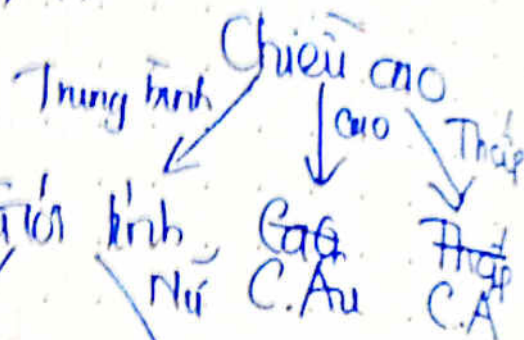 Chiều cao
Trung bình cao Thấp
Giới tính Cao Thấp
Nữ C.Âu C.Á